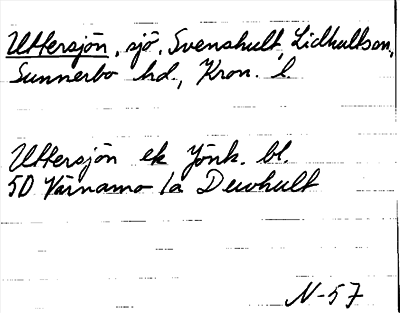 Uttersjön, sjö, Svenshult, Lidhultsn,
Sunnerbo hd, Kron. l
Uttersjön ek Jönk. bl.
5D Värnamo 1a Duvhult
N-57